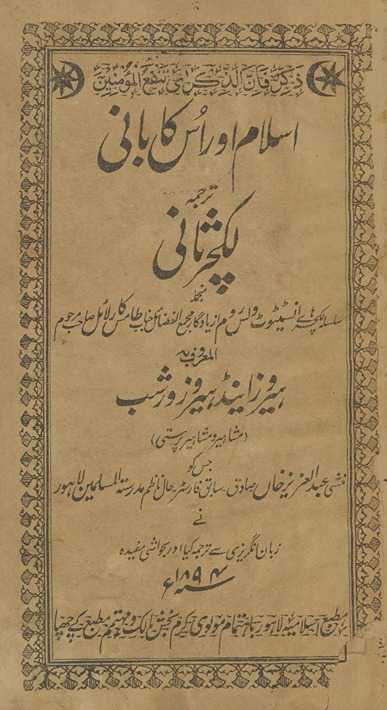 ذکر فان الذکرى تنفع المؤمنین
اسلام اور اُس کا بانی
ترجمہ
لکچر ثانی
منجملہ
سلسلہ لکچر ہائے انسٹیٹیوٹ از یادگار مجمع الفضائل جناب طامس کارلائل صاحب مرحوم
المعروف بہ
ہیروز اینڈ ہیروز ورشپ
(مشاہیر و مشاہیر پرستی)
جس کو
منشی عبد العزیز خاں صادق سابق فارسٹر حال ناظم مدرسۃ المسلمین لاہور
نے
زبان انگریزی سے ترجمہ کیا اور بحواشی مفیدہ
سنہ ۱۸۹۴ء
مطبع اسلامیہ لاہور باہتمام مولوی کرم بخش مالک و مہتمم مطبع کے چھپا